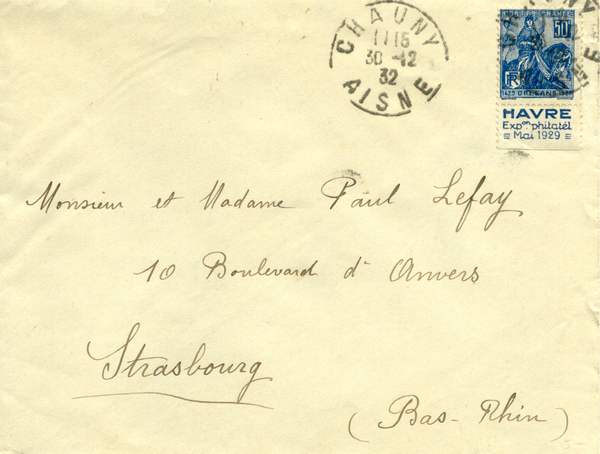 CHAUNY
11 15
30 -12
32
AISNE
50c
1429 ORLEANS 1929
HAVRE
Expon philatél
Mai 1929
Monsieur et Madame Paul Lefay
10 Boulevard d'Anvers
Strasbourg
(Bas-Rhin)